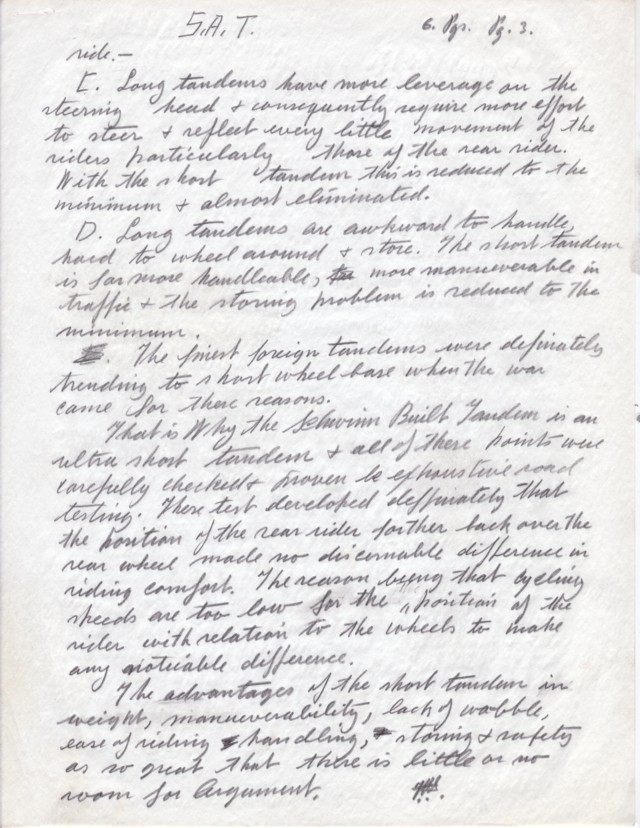 S.A.T. 6. Pgs. Pg. 3.
ride.—
C. Long tandems have more leverage on the
steering head & consequently require more effort
to steer & reflect every little movement of the
riders particularly those of the rear rider.
With the short tandem this is reduced to the
minimum & almost eliminated.
D. Long tandems are awkward to handle,
hard to wheel around & store. The short tandem
is far more handleable, more manueverable in
traffic & the storing problem is reduced to the
minimum.
E. The finest foreign tandems were definately
trending to short wheel base when the war
came for these reasons.
That is Why the Schwinn Built Tandem is an
ultra short tandem & all of these points were
carefully checked & proven by exhaustive road
testing. These test developed deffinately that
the position of the rear rider farther back over the
rear wheel made no discernable difference in
riding comfort. The reason being that cycling
speeds are too low for the position of the
rider with relation to the wheels to make
any noticuable difference.
The advantages of the short tandem in
weight, manueverability, lack of wobble,
ease of riding & handling, storing & safety
as so great that there is little or no
room for Argument.